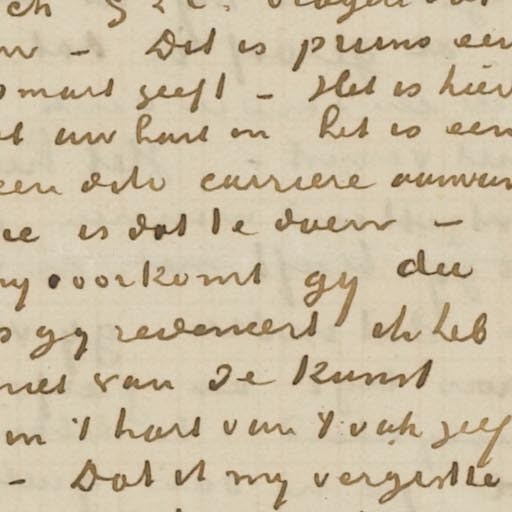 en – Dit is primo een
smart geeft – Het is hier
uw hart en het is een
een dito carriere aanvan
is dat te doen –
my voorkomt gy die
gy redeneert ik heb
niet van de kunst
en 't hart van 't vak zelf
– Dat is my vergiste